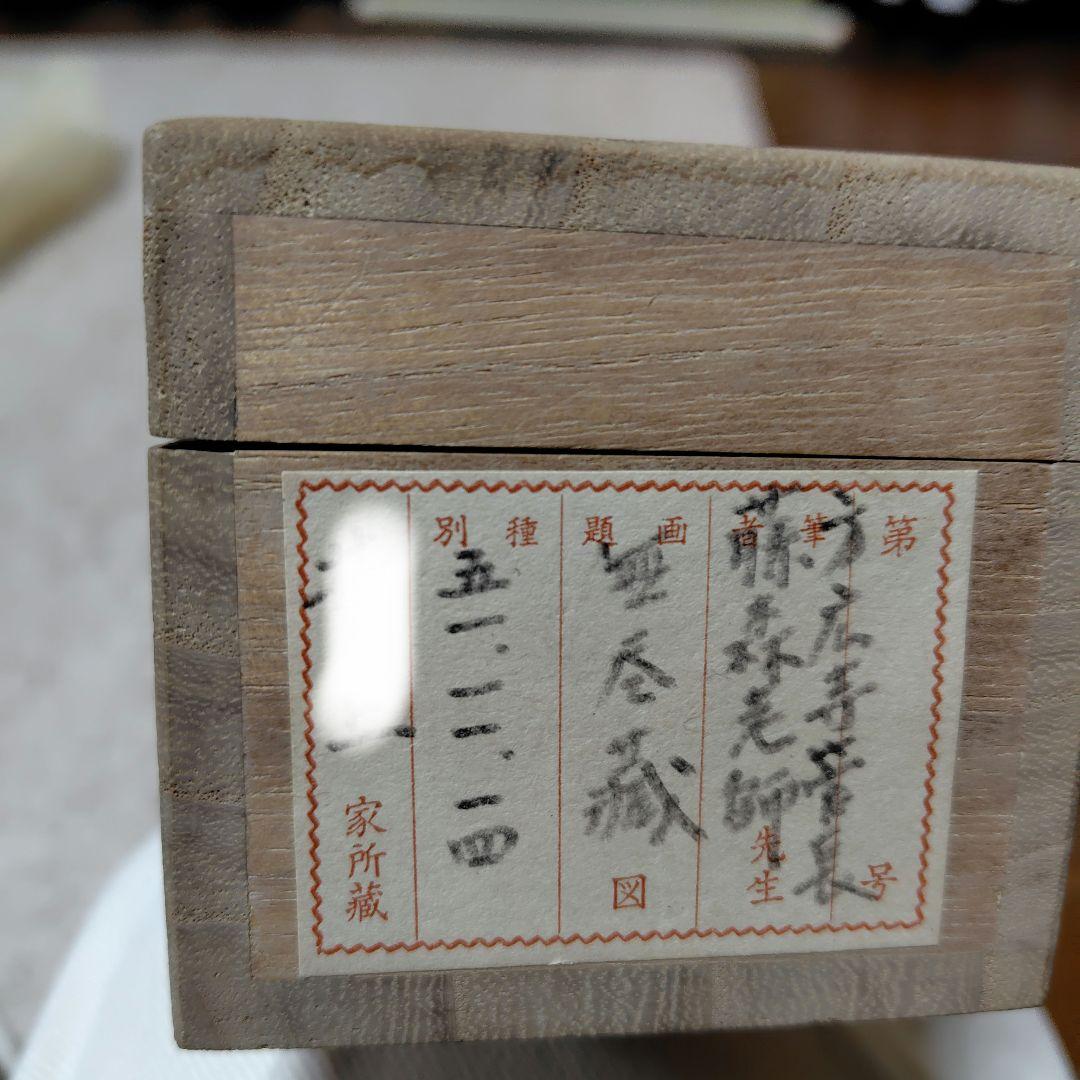 第 号
方広寺管長
筆者 先生
藤森老師
画題 図
無尽蔵
種別
五一.一二.一四
家所蔵